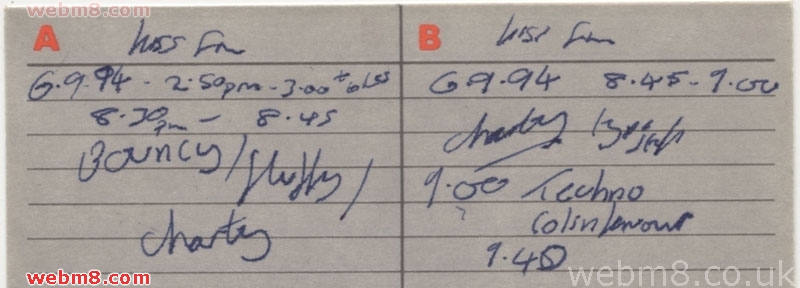 webm8.com
A
Kiss Fm
6.9.94 - 2.50pm - 3.00
8.30pm - 8.45
Bouncy / fluffy /
charty
B
Kiss Fm
6.9.94 8.45 - 9.00
charty
9.00 Techno
Colin
9.40
webm8.com
webm8.co.uk